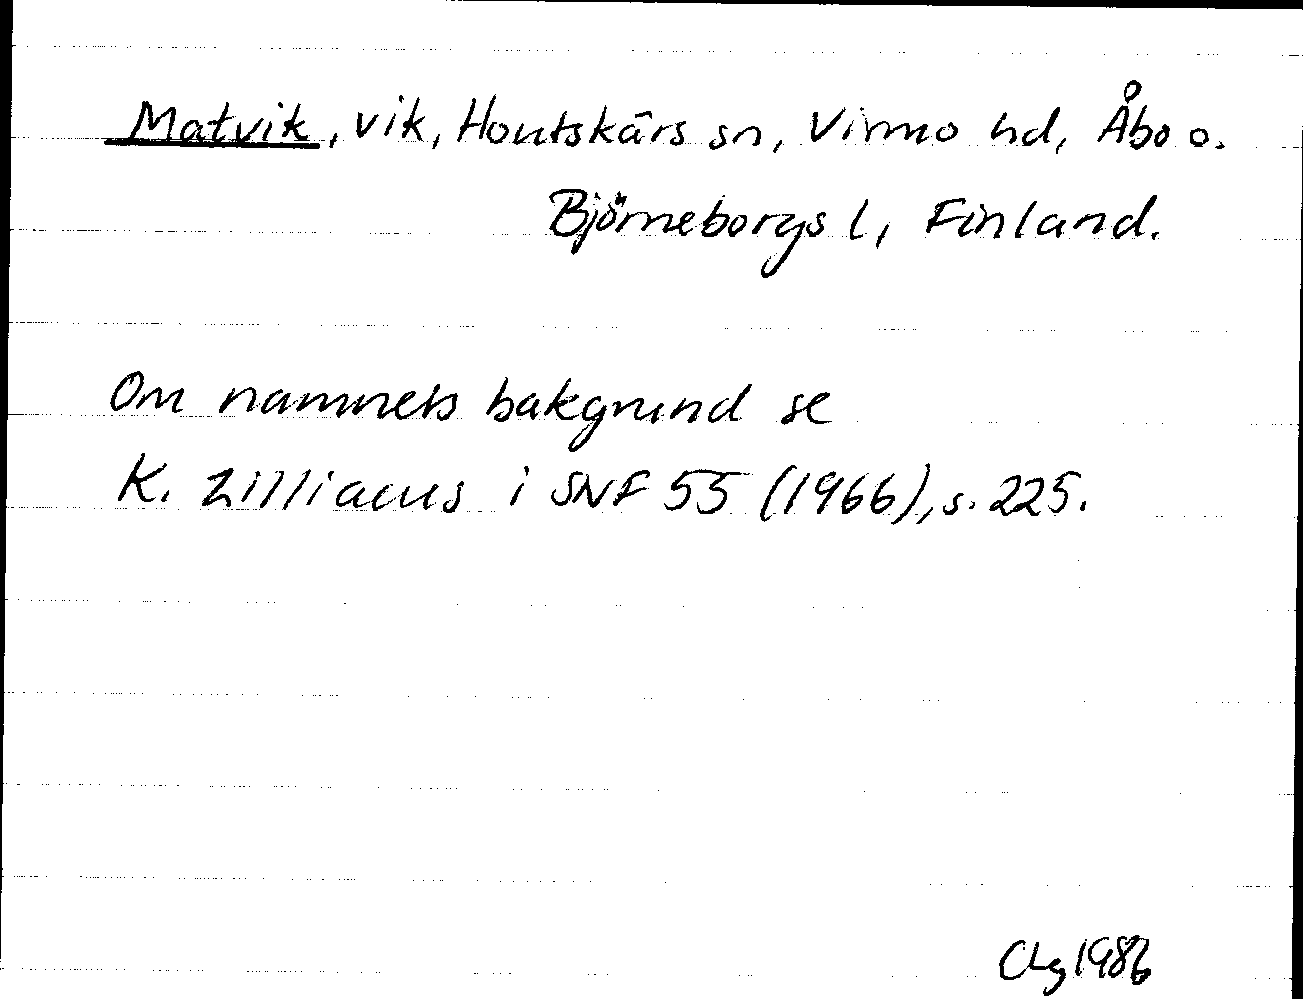 Matvik, vik, Houtskärs sn, Virmo hd, Åbo o.
Björneborgs l, Finland.
Om namnets bakgrund se
K. Zilliacus i SNF 55 (1966), s. 225.
Clg 1986